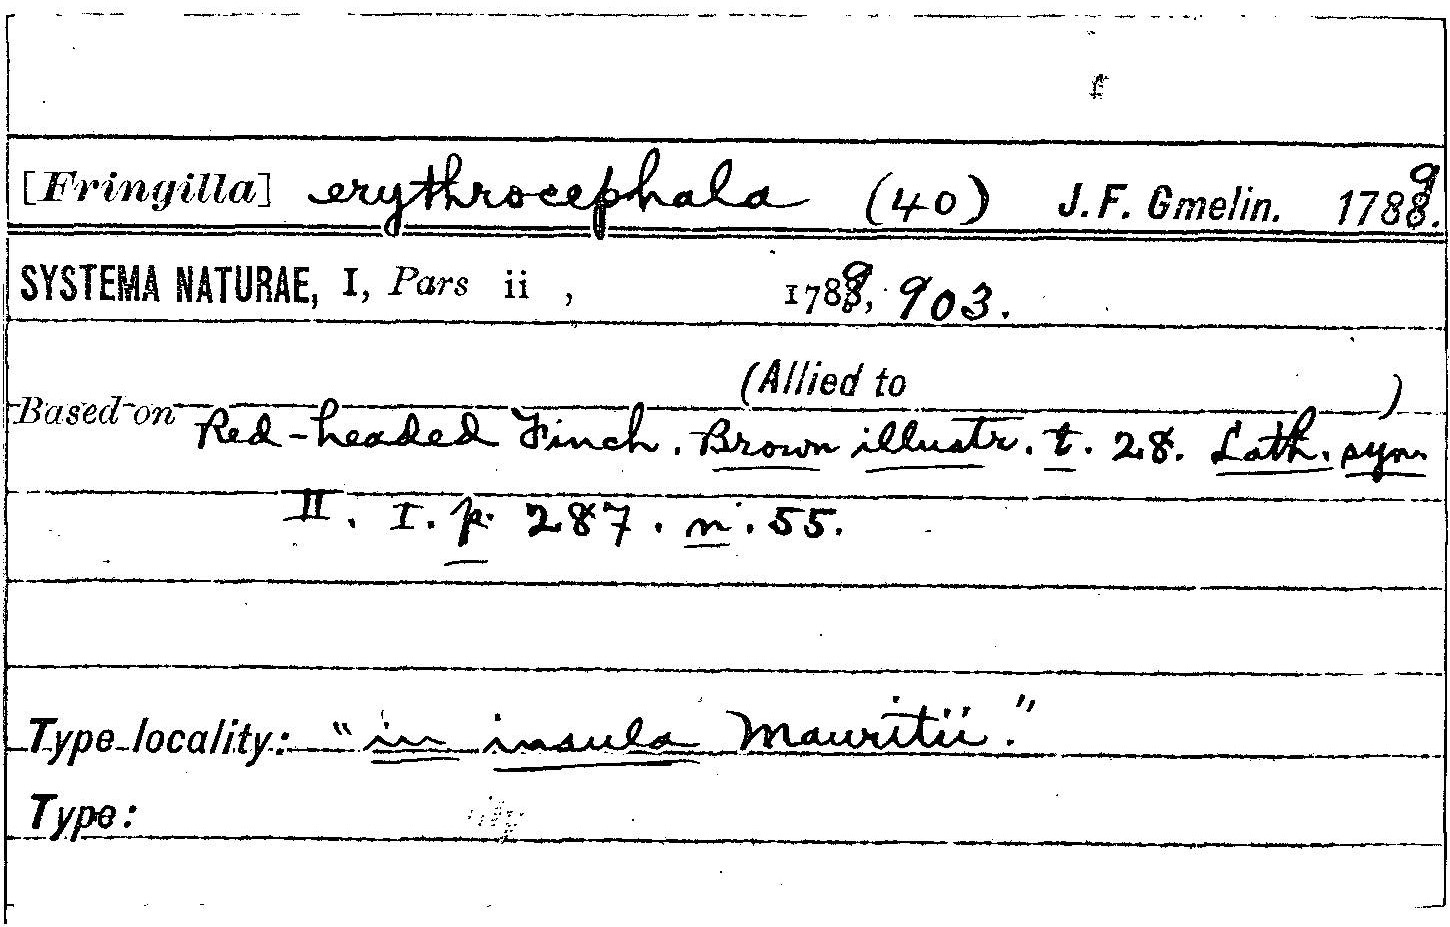 [Fringilla] erythrocephala (40) J. F. Gmelin. 1789.
SYSTEMA NATURAE, I, Pars ii , 1789, 903.
(Allied to )
Based on Red-headed Finch. Brown illustr. t. 28. Lath. syn.
II. I. p. 287. n. 55.
Type locality: "in insula Mauritii."
Type: